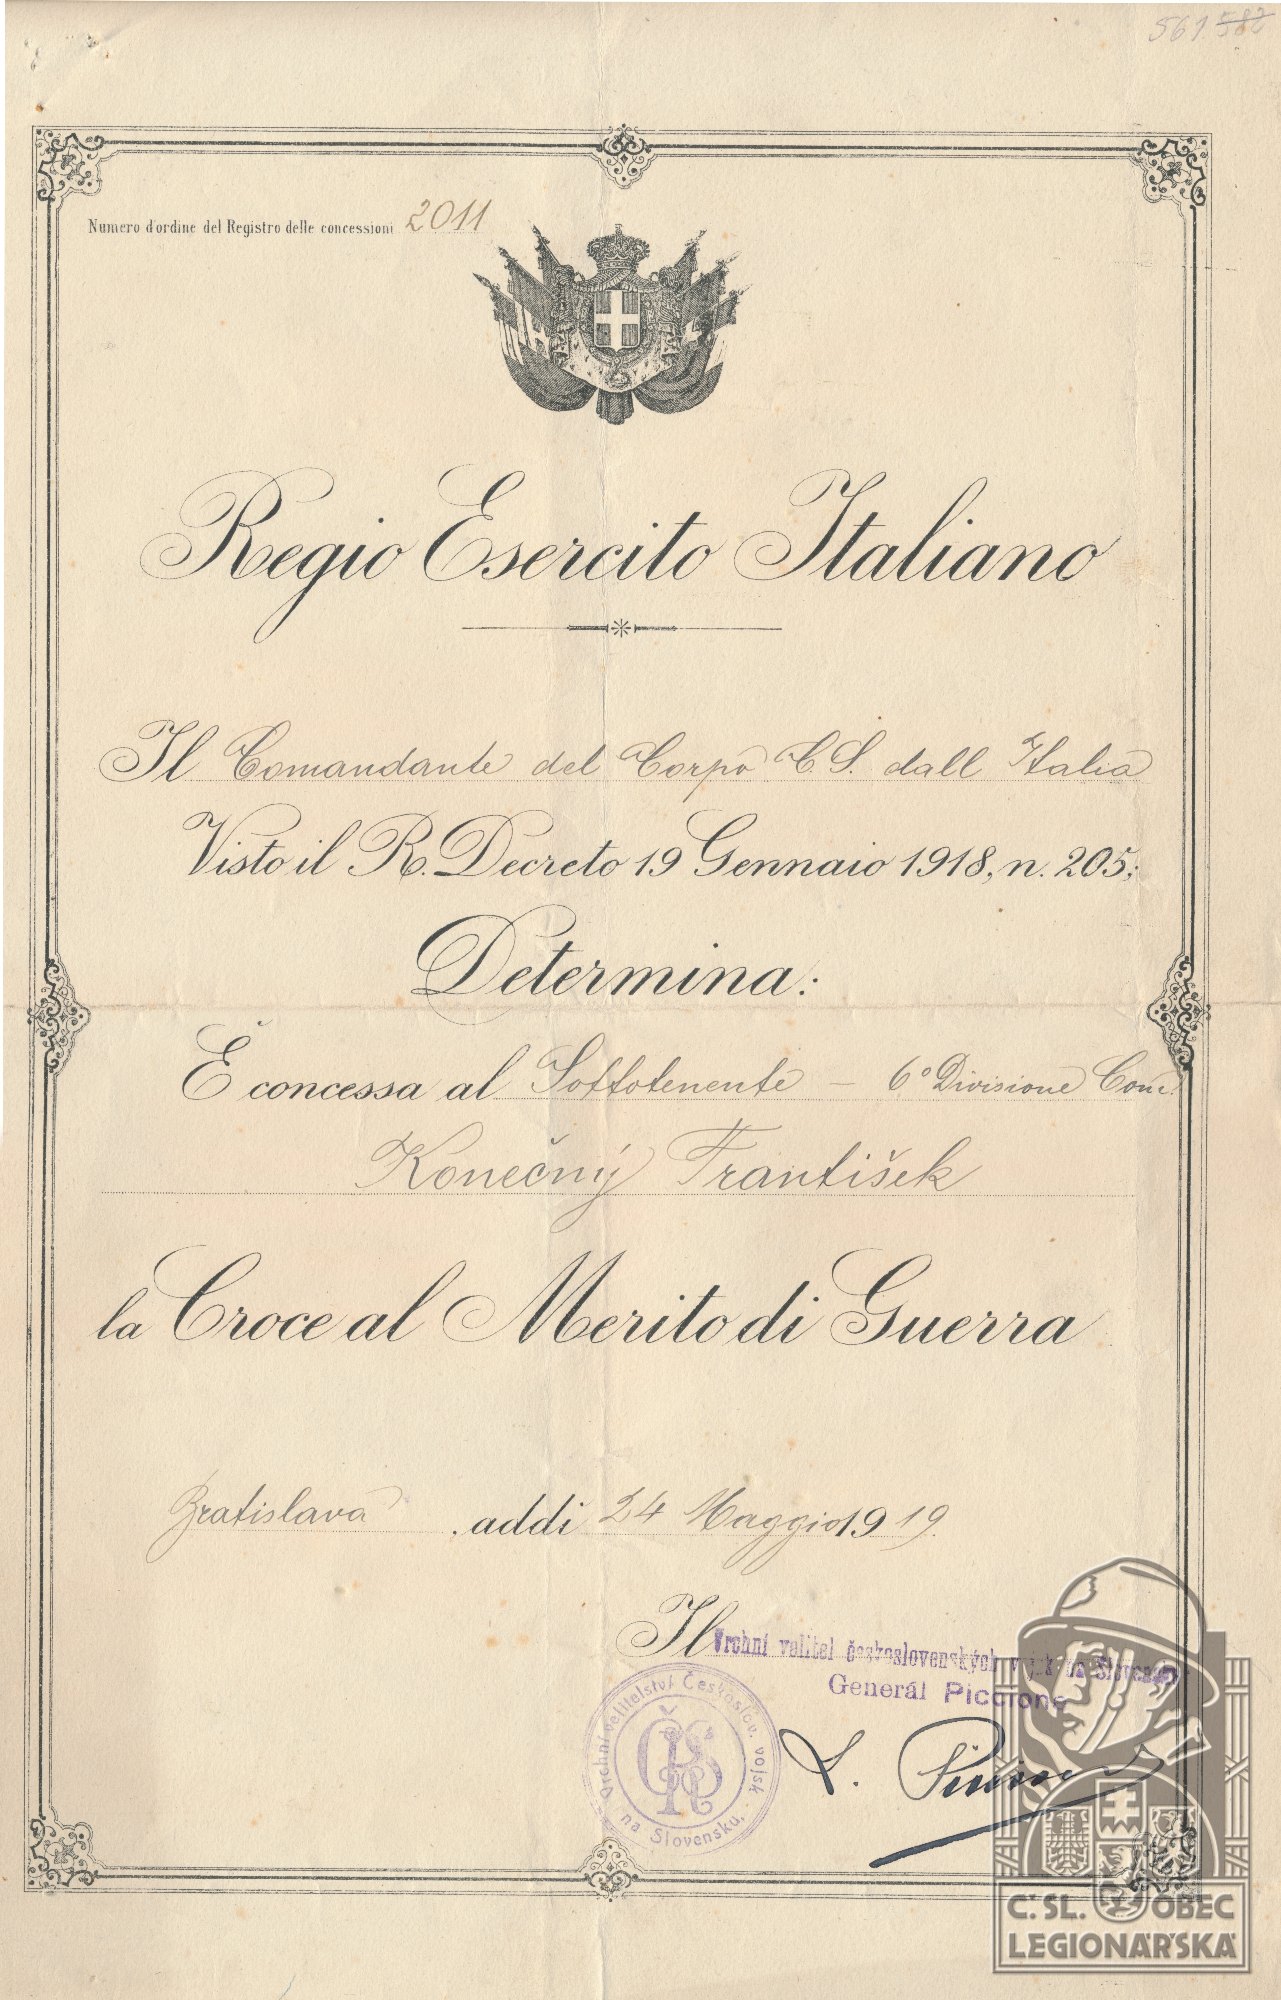 561. 582
Numero d'ordine del Registro delle concessioni 2011
Regio Esercito Italiano
Il Comandante del Corpo C.S. dall Italia
Visto il R. Decreto 19 Gennaio 1918, n. 205;
Determina:
È concessa al Sottotenente – 6° Divisione Com.
Konečný František
la Croce al Merito di Guerra
Bratislava, addì 24 Maggio 1919.
Il Vrchní velitel československých vojsk na Slovensku
Generál Piccione
Vrchní velitelství Českoslov. vojsk na Slovensku.
ČSR
L. Piccione
Č. SL. OBEC
LEGIONÁŘSKÁ